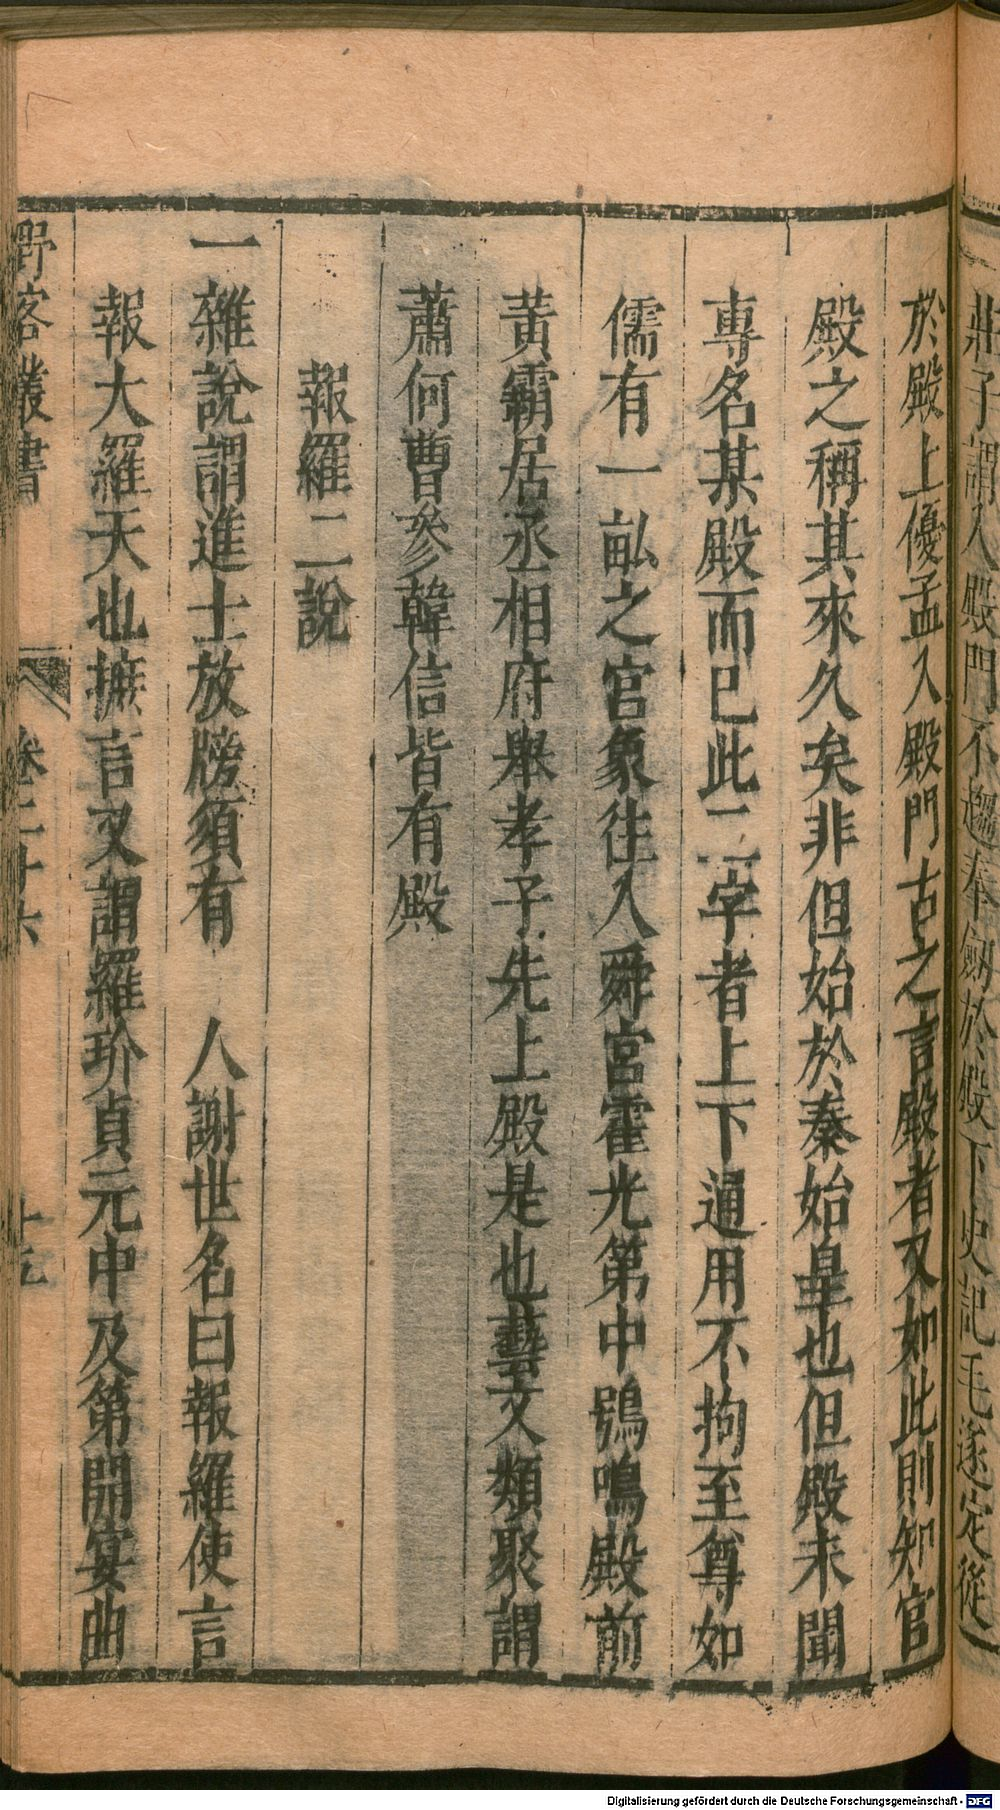 莊子謂入殿門不趨奉劒於殿下史記毛遂定從
於殿上優孟入殿門古之言殿者又如此則知宫
殿之稱其來久矣非但始於秦始皇也但殿未聞
專名某殿而已此二字者上下通用不拘至尊如
儒有一畝之宫象往入舜宫霍光第中鴞鳴殿前
黃霸居丞相府舉孝子先上殿是也藝文類聚謂
蕭何曹參韓信皆有殿
報羅二說
一雜說謂進士放牓須有 人謝世名曰報羅使言
報大羅天也摭言又謂羅玠貞元中及第開宴曲
野客叢書 卷二十六 十
Digitalisierung gefördert durch die Deutsche Forschungsgemeinschaft - DFG